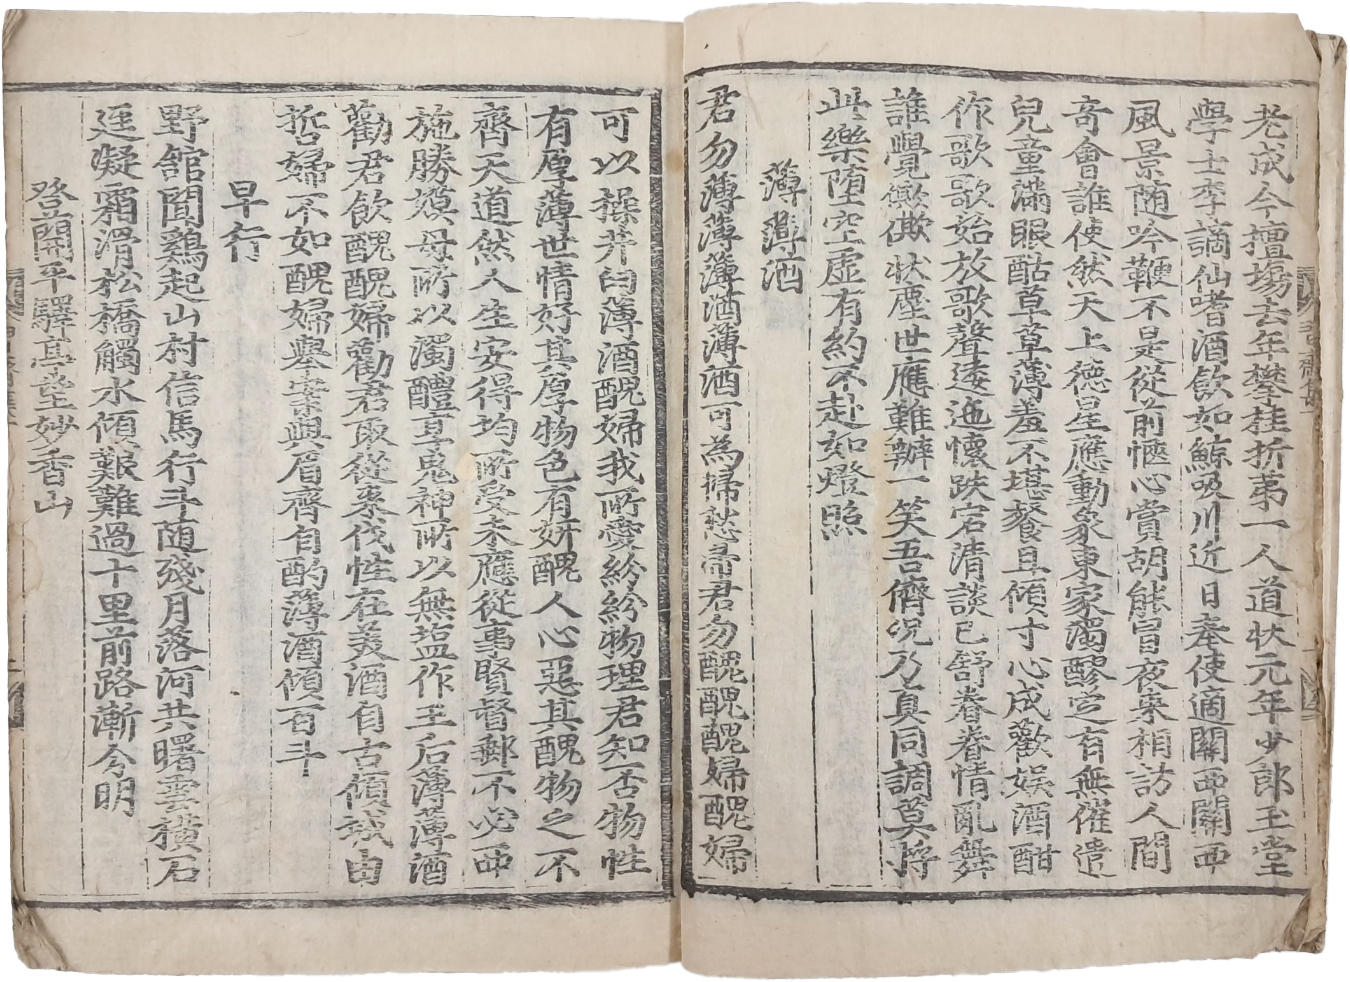 老成今擅場去年攀桂折苐一人道状元年少郎玉堂
學士李謫仙嗜酒飲如鯨吸川近日奉使適關西關西
風景随吟鞭不是從前愜心賞胡能冒夜来相訪人間
奇會誰使然天上徳星應動象東家濁醪罍有無催遣
兒童滿眼酤草草薄羞不堪餐且傾寸心成歡娱酒酣
作歌歌始放歌聲逶迤懷跌宕清談已舒眷眷情亂舞
誰覺僛僛状塵世應難辦一笑吾儕况乃真同調莫将
此樂堕空虚有約不赴如燈照
薄薄酒
君勿薄薄薄酒薄酒可為掃愁帚君勿醜醜醜婦醜婦
可以操井臼薄酒醜婦我所愛紛紛物理君知否物性
有厚薄世情好其厚物色有妍醜人心惡其醜物之不
齊天道然人生安得均所受未應從事賢督郵不必西
施勝嫫母所以濁醴享鬼神所以無塩作王后薄薄酒
勸君飲醜醜婦勸君取從来伐性在美酒自古傾城由
哲婦不如醜婦擧案與眉齊自酌薄酒傾百斗
早行
野舘聞鷄起山村信馬行斗随殘月落河共曙雲横石
逕凝霜滑松橋觸水傾艱難過十里前路漸分明
登開平驛亭望妙香山